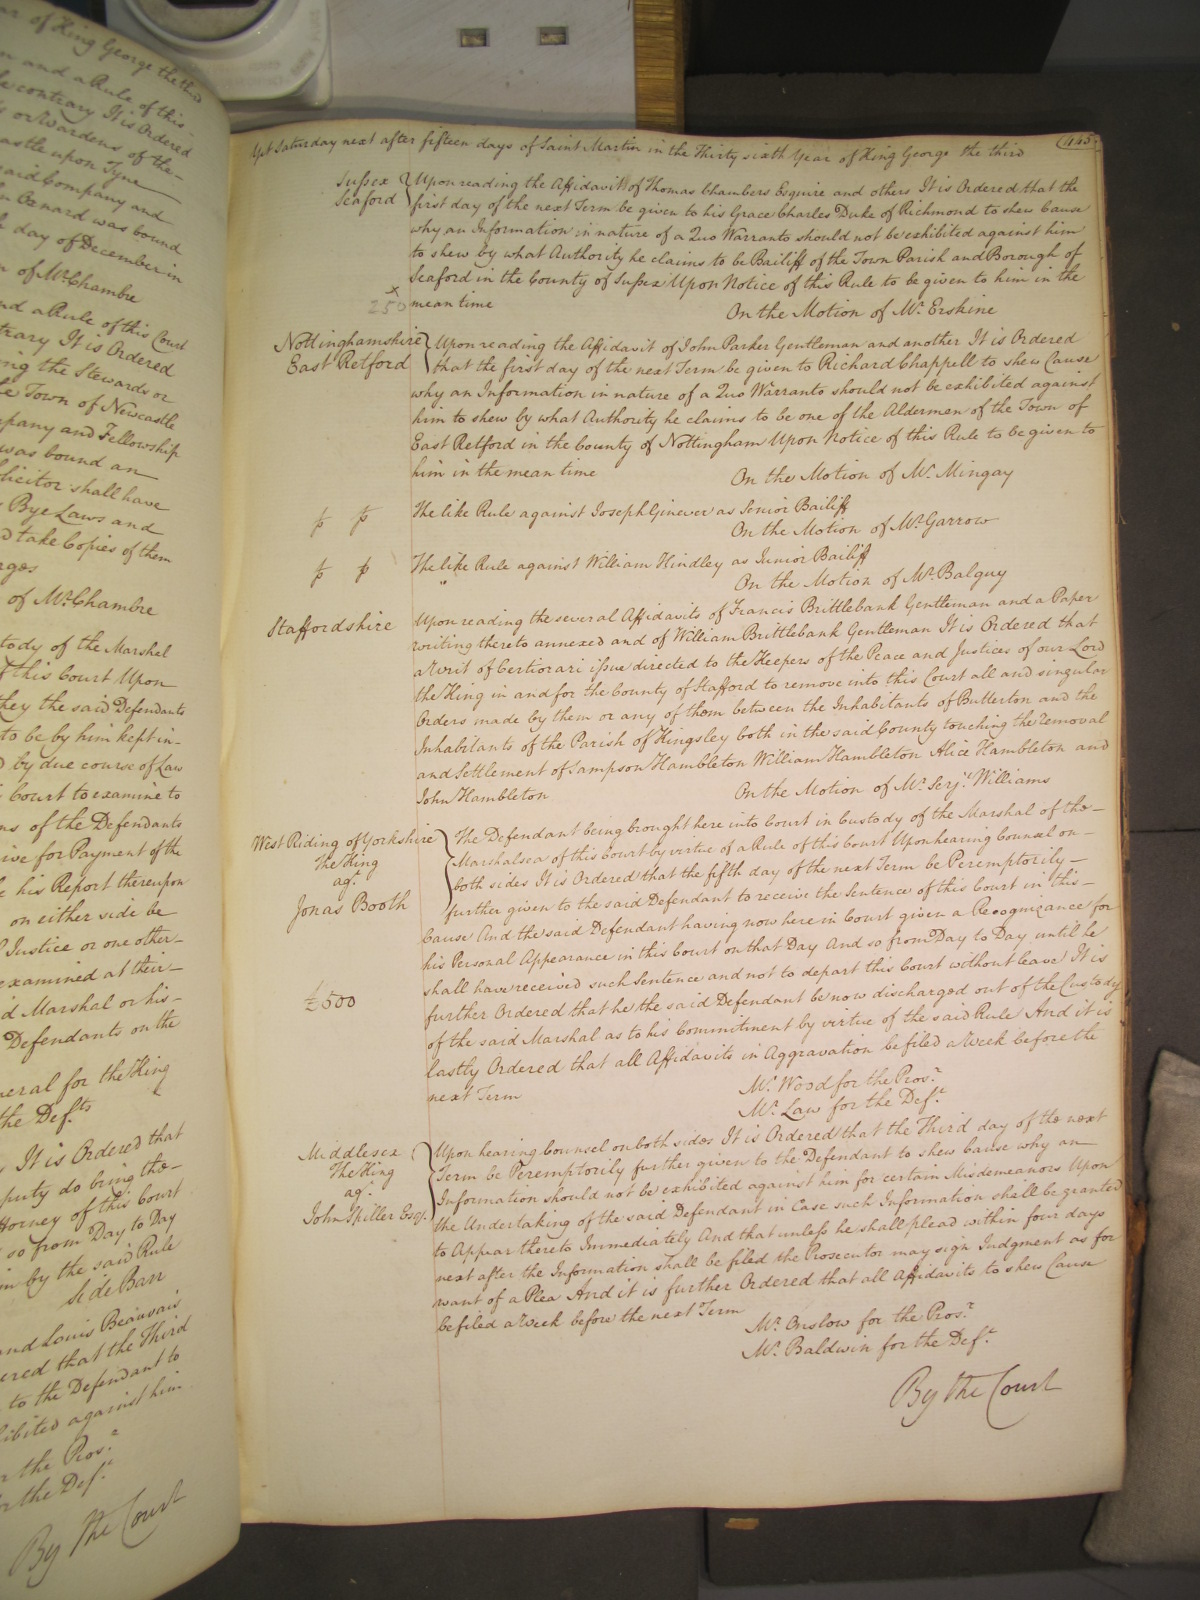 ar of King George the third
n and a Rule of this
e contrary It is Ordered
s or Wardens of the
astle upon Tyne
said Company and
n Oxnard was bound
h day of December in
n of Mr. Chambre
nd a Rule of this Court
trary It is Ordered
ing the Stewards or
e Town of Newcastle
mpany and Fellowship
was bound an
licitor shall have
Bye Laws and
d take Copies of them
rges
of Mr. Chambre
tody of the Marshal
f this Court Upon
hey the said Defendants
to be by him kept in
d by due course of Law
Court to examine to
ns of the Defendants
ive for Payment of the
e his Report thereupon
on either side be
Justice or one other
examined at their
id Marshal or his
Defendants on the
neral for the King
the Defts
It is Ordered that
puty do bring the
ttorney of this Court
so from Day to Day
in by the said Rule
Side Barr
and Louis Beausais
ered that the Third
to the Defendant to
hibited against him
r the Prosr.
r the Deft.
By the Court
Yet Saturday next after fifteen days of Saint Martin in the Thirty sixth Year of King George the third
445
Sussex
Seaford
Upon reading the Affidavits of Thomas Chambers Esquire and others It is Ordered that the
first day of the next Term be given to his Grace Charles Duke of Richmond to shew Cause
why an Information in nature of a Quo Warranto should not be exhibited against him
to shew by what Authority he claims to be Bailiff of the Town Parish and Borough of
Seaford in the County of Sussex Upon Notice of this Rule to be given to him in the
x
250
mean time
On the Motion of Mr. Erskine
Nottinghamshire
East Retford
Upon reading the Affidavit of John Parker Gentleman and another It is Ordered
that the first day of the next Term be given to Richard Chappell to shew Cause
why an Information in nature of a Quo Warranto should not be exhibited against
him to shew by what Authority he claims to be one of the Aldermen of the Town of
East Retford in the County of Nottingham Upon Notice of this Rule to be given to
him in the mean time
On the Motion of Mr. Mingay
The like Rule against Joseph Ginever as Senior Bailiff
On the Motion of Mr. Garrow
The like Rule against William Hindley as Junior Bailiff
On the Motion of Mr. Balguy
Staffordshire
Upon reading the several Affidavits of Francis Brittlebank Gentleman and a Paper
writing thereto annexed and of William Brittlebank Gentleman It is Ordered that
a Writ of Certiorari issue directed to the Keepers of the Peace and Justices of our Lord
the King in and for the County of Stafford to remove into this Court all and singular
Orders made by them or any of them between the Inhabitants of Butterton and the
Inhabitants of the Parish of Kingsley both in the said County touching the removal
and Settlement of Sampson Hambleton William Hambleton Alice Hambleton and
John Hambleton
On the Motion of Mr. Serjt. Williams
West Riding of Yorkshire
The King
agt.
Jonas Booth
£500
The Defendant being brought here into Court in Custody of the Marshal of the
Marshalsea of this Court by virtue of a Rule of this Court Upon hearing Counsel on
both sides It is Ordered that the fifth day of the next Term be Peremptorily
further given to the said Defendant to receive the Sentence of this Court in this
Cause And the said Defendant having now here in Court given a Recognizance for
his Personal Appearance in this Court on that Day And so from Day to Day until he
shall have received such Sentence and not to depart this Court without leave It is
further Ordered that he the said Defendant be now discharged out of the Custody
of the said Marshal as to his Commitment by virtue of the said Rule And it is
lastly Ordered that all Affidavits in Aggravation be filed a Week before the
next Term
Mr. Wood for the Prosr.
Mr. Law for the Deft.
Middlesex
The King
agt.
John Spiller Esqr.
Upon hearing Counsel on both sides It is Ordered that the Third day of the next
Term be Peremptorily further given to the Defendant to shew Cause why an
Information should not be exhibited against him for certain Misdemeanors Upon
the Undertaking of the said Defendant in Case such Information shall be granted
to Appear thereto Immediately And that unless he shall plead within four days
next after the Information shall be filed the Prosecutor may sign Judgment as for
want of a Plea And it is further Ordered that all Affidavits to shew Cause
be filed a Week before the next Term
Mr. Onslow for the Prosr.
Mr. Baldwin for the Deft.
By the Court